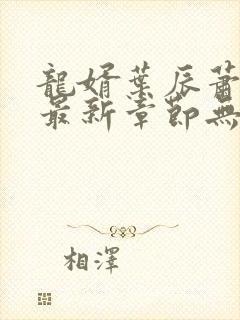 龍婿葉辰蕭
最新章節無
相澤